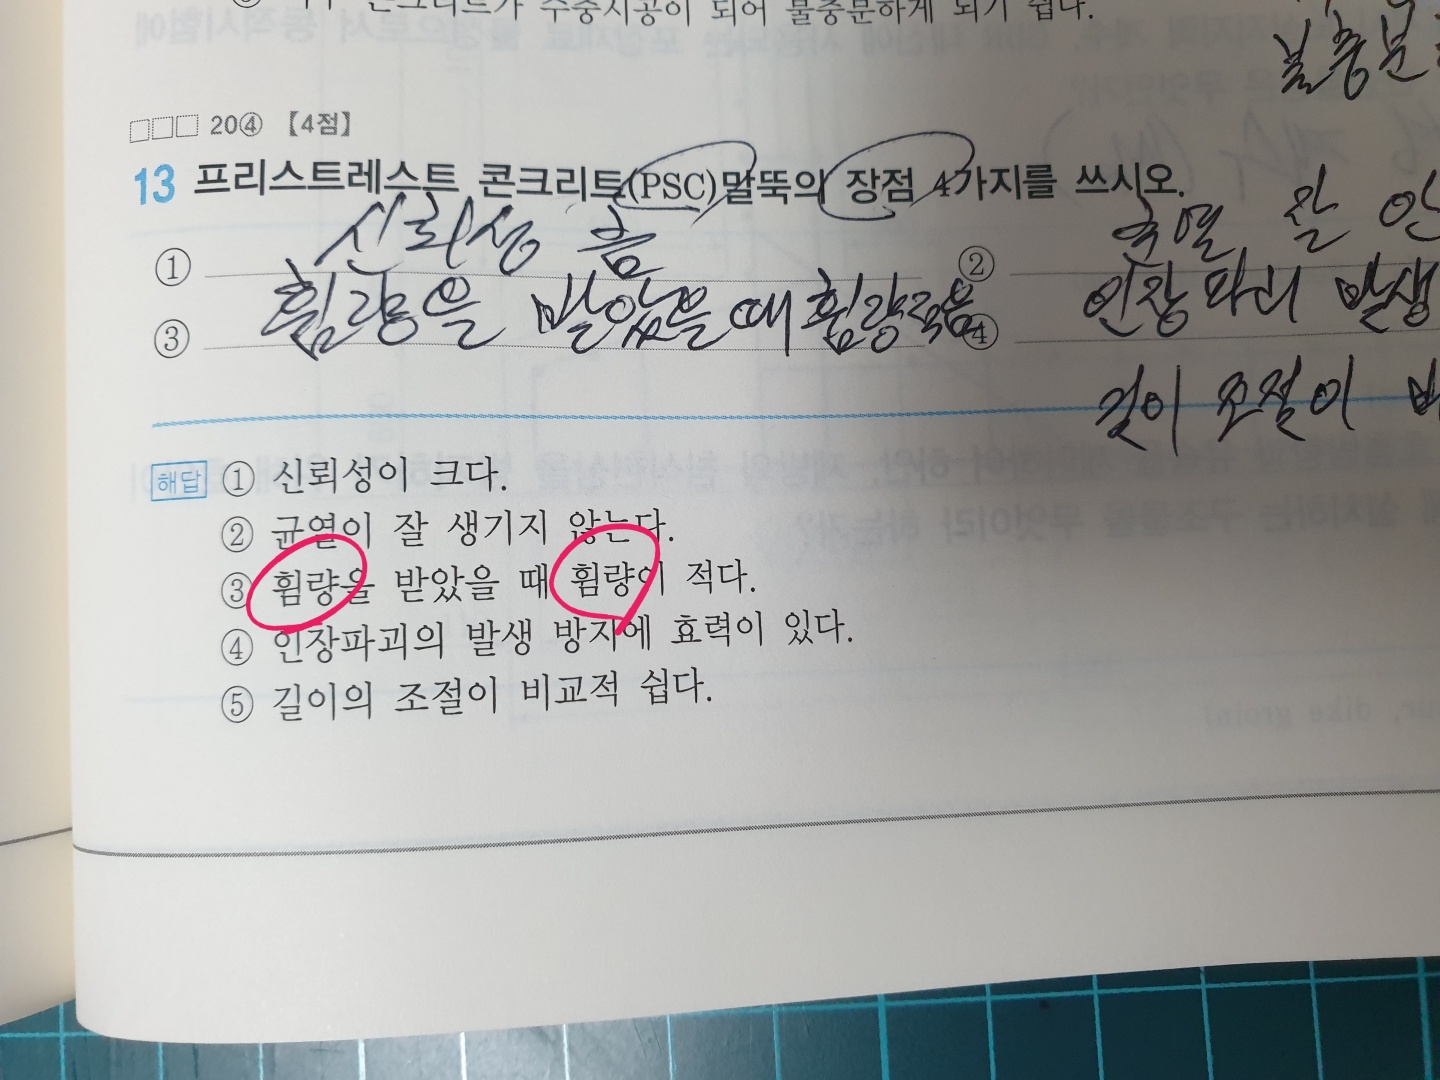 콘크리트가 수중시공이 되어 불충분하게 되기 쉽다.
불충분
20④ 【4점】
13 프리스트레스트 콘크리트(PSC)말뚝의 장점 4가지를 쓰시오.
① 신뢰성 큼 ② 균열 잘 안
③ 휨량을 받았을 때 휨량적음 ④ 인장파괴 발생
길이 조절이 비
해답 ① 신뢰성이 크다.
② 균열이 잘 생기지 않는다.
③ 휨량을 받았을 때 휨량이 적다.
④ 인장파괴의 발생 방지에 효력이 있다.
⑤ 길이의 조절이 비교적 쉽다.